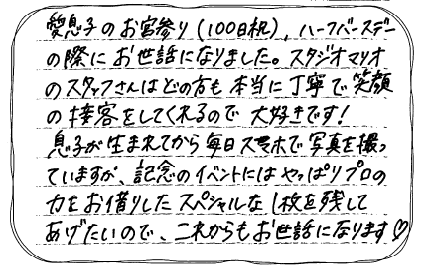 愛息子のお宮参り(100日祝)、ハーフバースデー
の際にお世話になりました。スタジオマリオ
のスタッフさんはどの方も本当に丁寧で笑顔
の接客をしてくれるので大好きです！
息子が生まれてから毎日スマホで写真を撮っ
ていますが、記念のイベントにはやっぱりプロの
力をお借りしたスペシャルな1枚を残して
あげたいので、これからもお世話になります♡